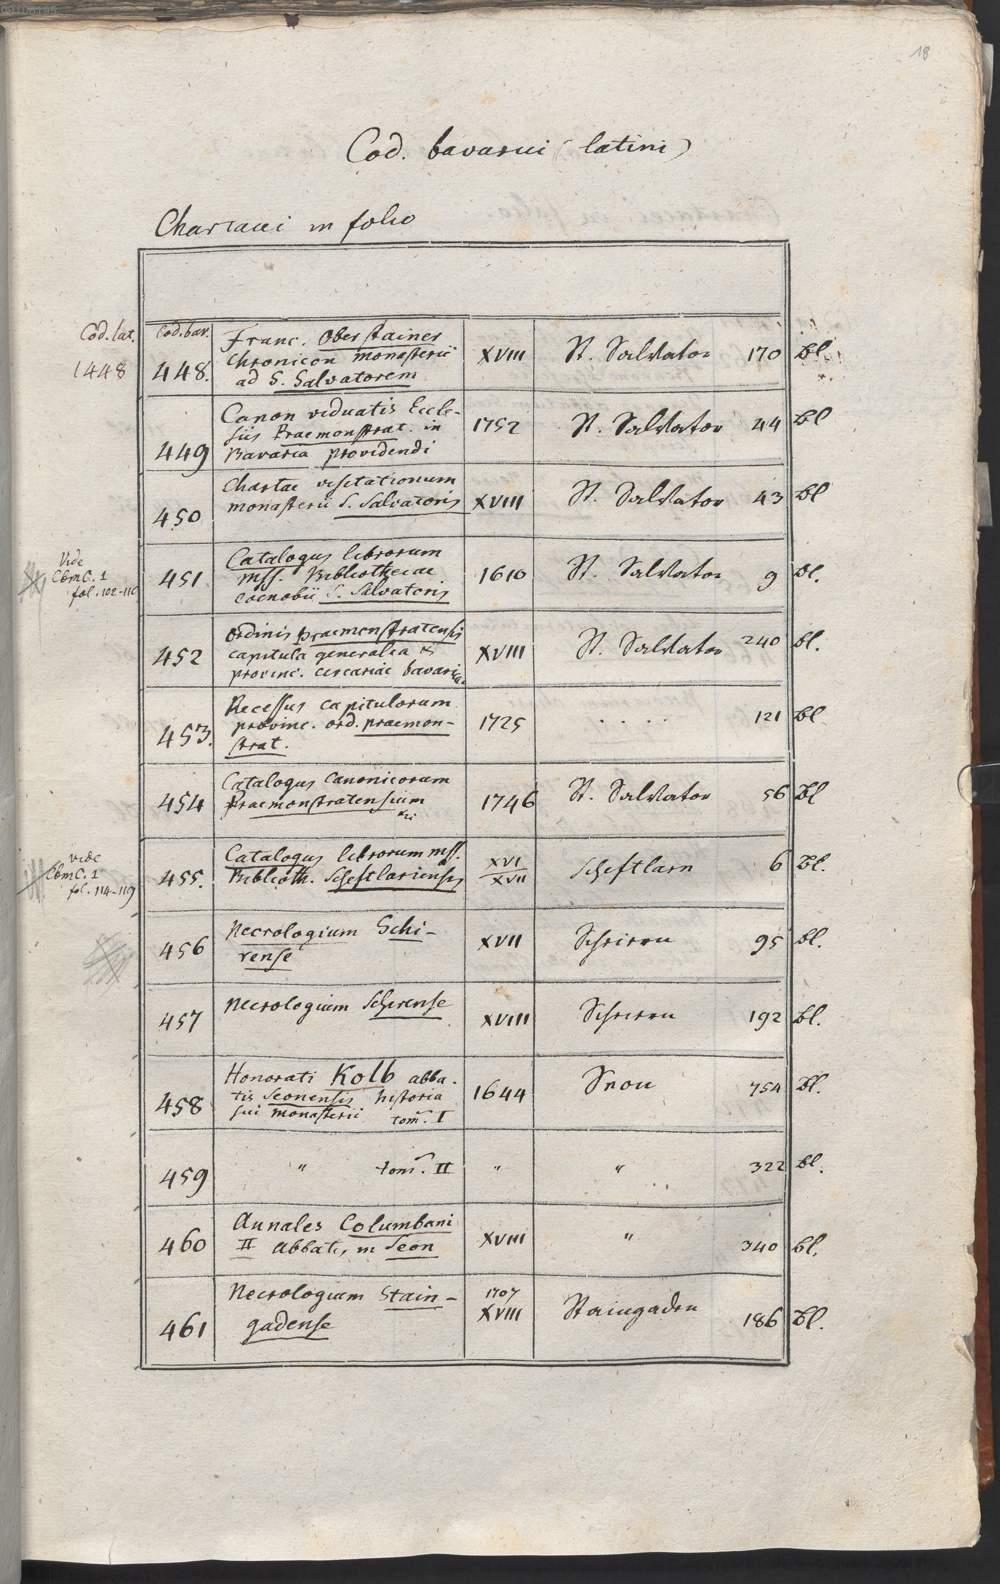 18
Cod. bavarici (latini)
Chartacei in folio
Cod. lat. Cod. bav. Franc. Oberstainer
1448 448. Chronicon monasterii XVIII St. Salvator 170 Bl.
ad S. Salvatorem
Canon viduatis Eccle-
siis Praemonstrat. in 1752 St. Salvator 44 Bl
449 Bavaria providendi
Chartae visitationum
450 monasterii S. Salvatoris XVIII St. Salvator 43 Bl
Vide Catalogus librorum
CbmC. 1 451 mss. Bibliothecae 1610 St. Salvator 9 Bl.
fol. 102-110 coenobii S. Salvatoris
Ordinis praemonstratensis
452 capitula generalia & XVIII St. Salvator 240 Bl.
provinc. circariae bavariae
Recessus capitulorum
453. provinc. ord. praemon- 1725 . . . . 121 Bl
strat.
Catalogus Canonicorum
454 Praemonstratensium 1746 St. Salvator 56 Bl
vide Catalogus librorum mss. XVI
CbmC. 1 455. Biblioth. Scheftlariensis XVII Scheftlarn 6 Bl.
fol. 114-119
456 Necrologium Schi- XVII Scheiern 95 Bl.
rense
457 Necrologium Schirense XVIII Scheiern 192 Bl.
Honorati Kolb abba-
458 tis Seonensis historia 1644 Seon 754 Bl.
sui monasterii tom. I
459 " tom. II " " 322 Bl.
Annales Columbani
460 II Abbatis in Seon XVIII " 340 Bl.
Necrologium Stain- 1707
461 gadense XVIII Staingaden 186 Bl.